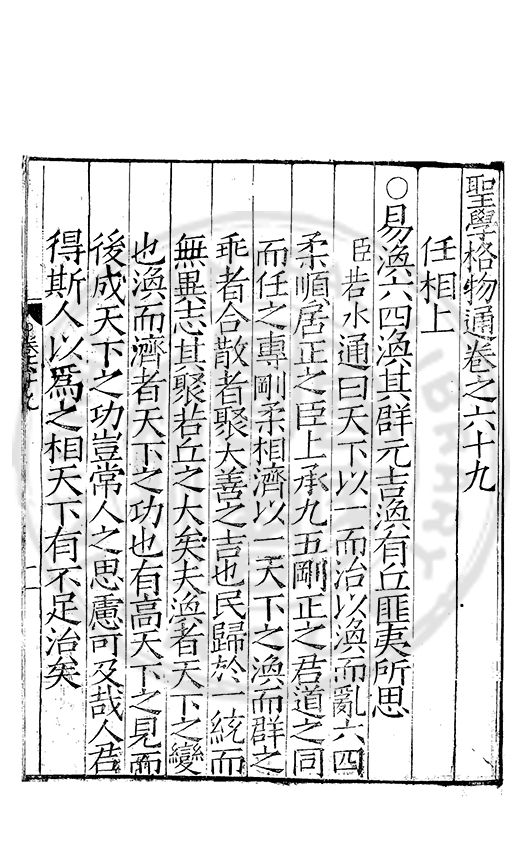 聖學格物通卷之六十九
任相上
○易渙六四渙其群元吉渙有丘匪夷所思
臣若水通曰天下以一而治以渙而亂六四
柔順居正之臣上承九五剛正之君道之同
而任之專剛柔相濟以一天下之渙而群之
乖者合散者聚大善之吉也民歸於一統而
無異志其聚若丘之大矣夫渙者天下之變
也渙而濟者天下之功也有高天下之見而
後成天下之功豈常人之思慮可及哉人君
得斯人以爲之相天下有不足治矣
卷六十九
一